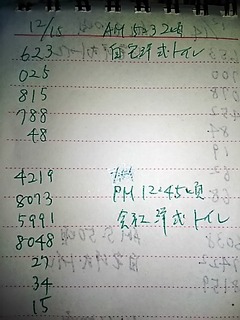 12/15 AM 5:32頃
623 自宅洋式トイレ
025
815
788
48
4219
8073 PM 12:45頃
5991 会社洋式トイレ
8048
27
34
15